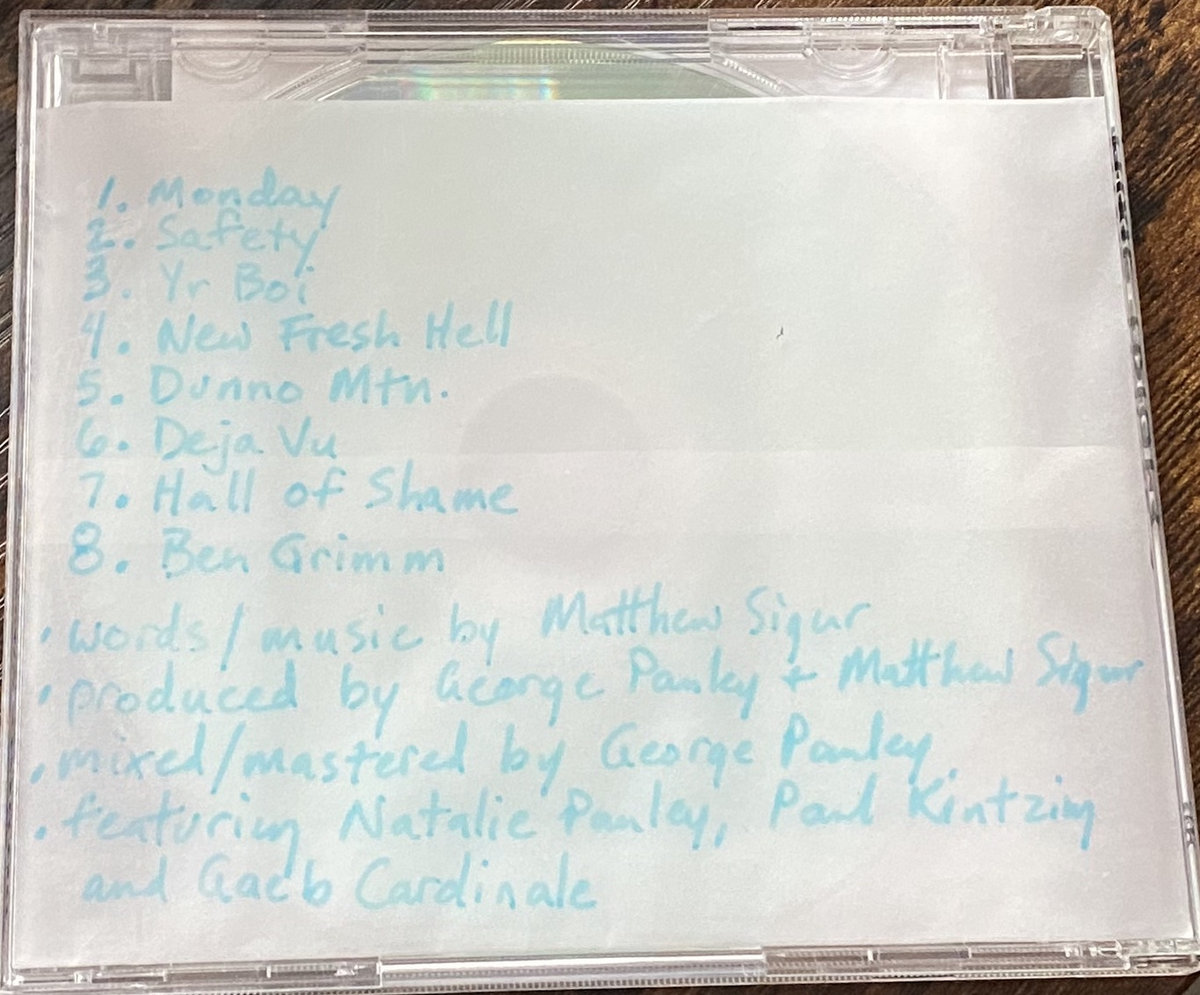 1. Monday
2. Safety
3. Yr Boi
4. New Fresh Hell
5. Dunno Mtn.
6. Deja Vu
7. Hall of Shame
8. Ben Grimm
• words/music by Matthew Sigur
• produced by George Pauley + Matthew Sigur
• mixed/mastered by George Pauley
• featuring Natalie Pauley, Paul Kintzing
and Gaeb Cardinale